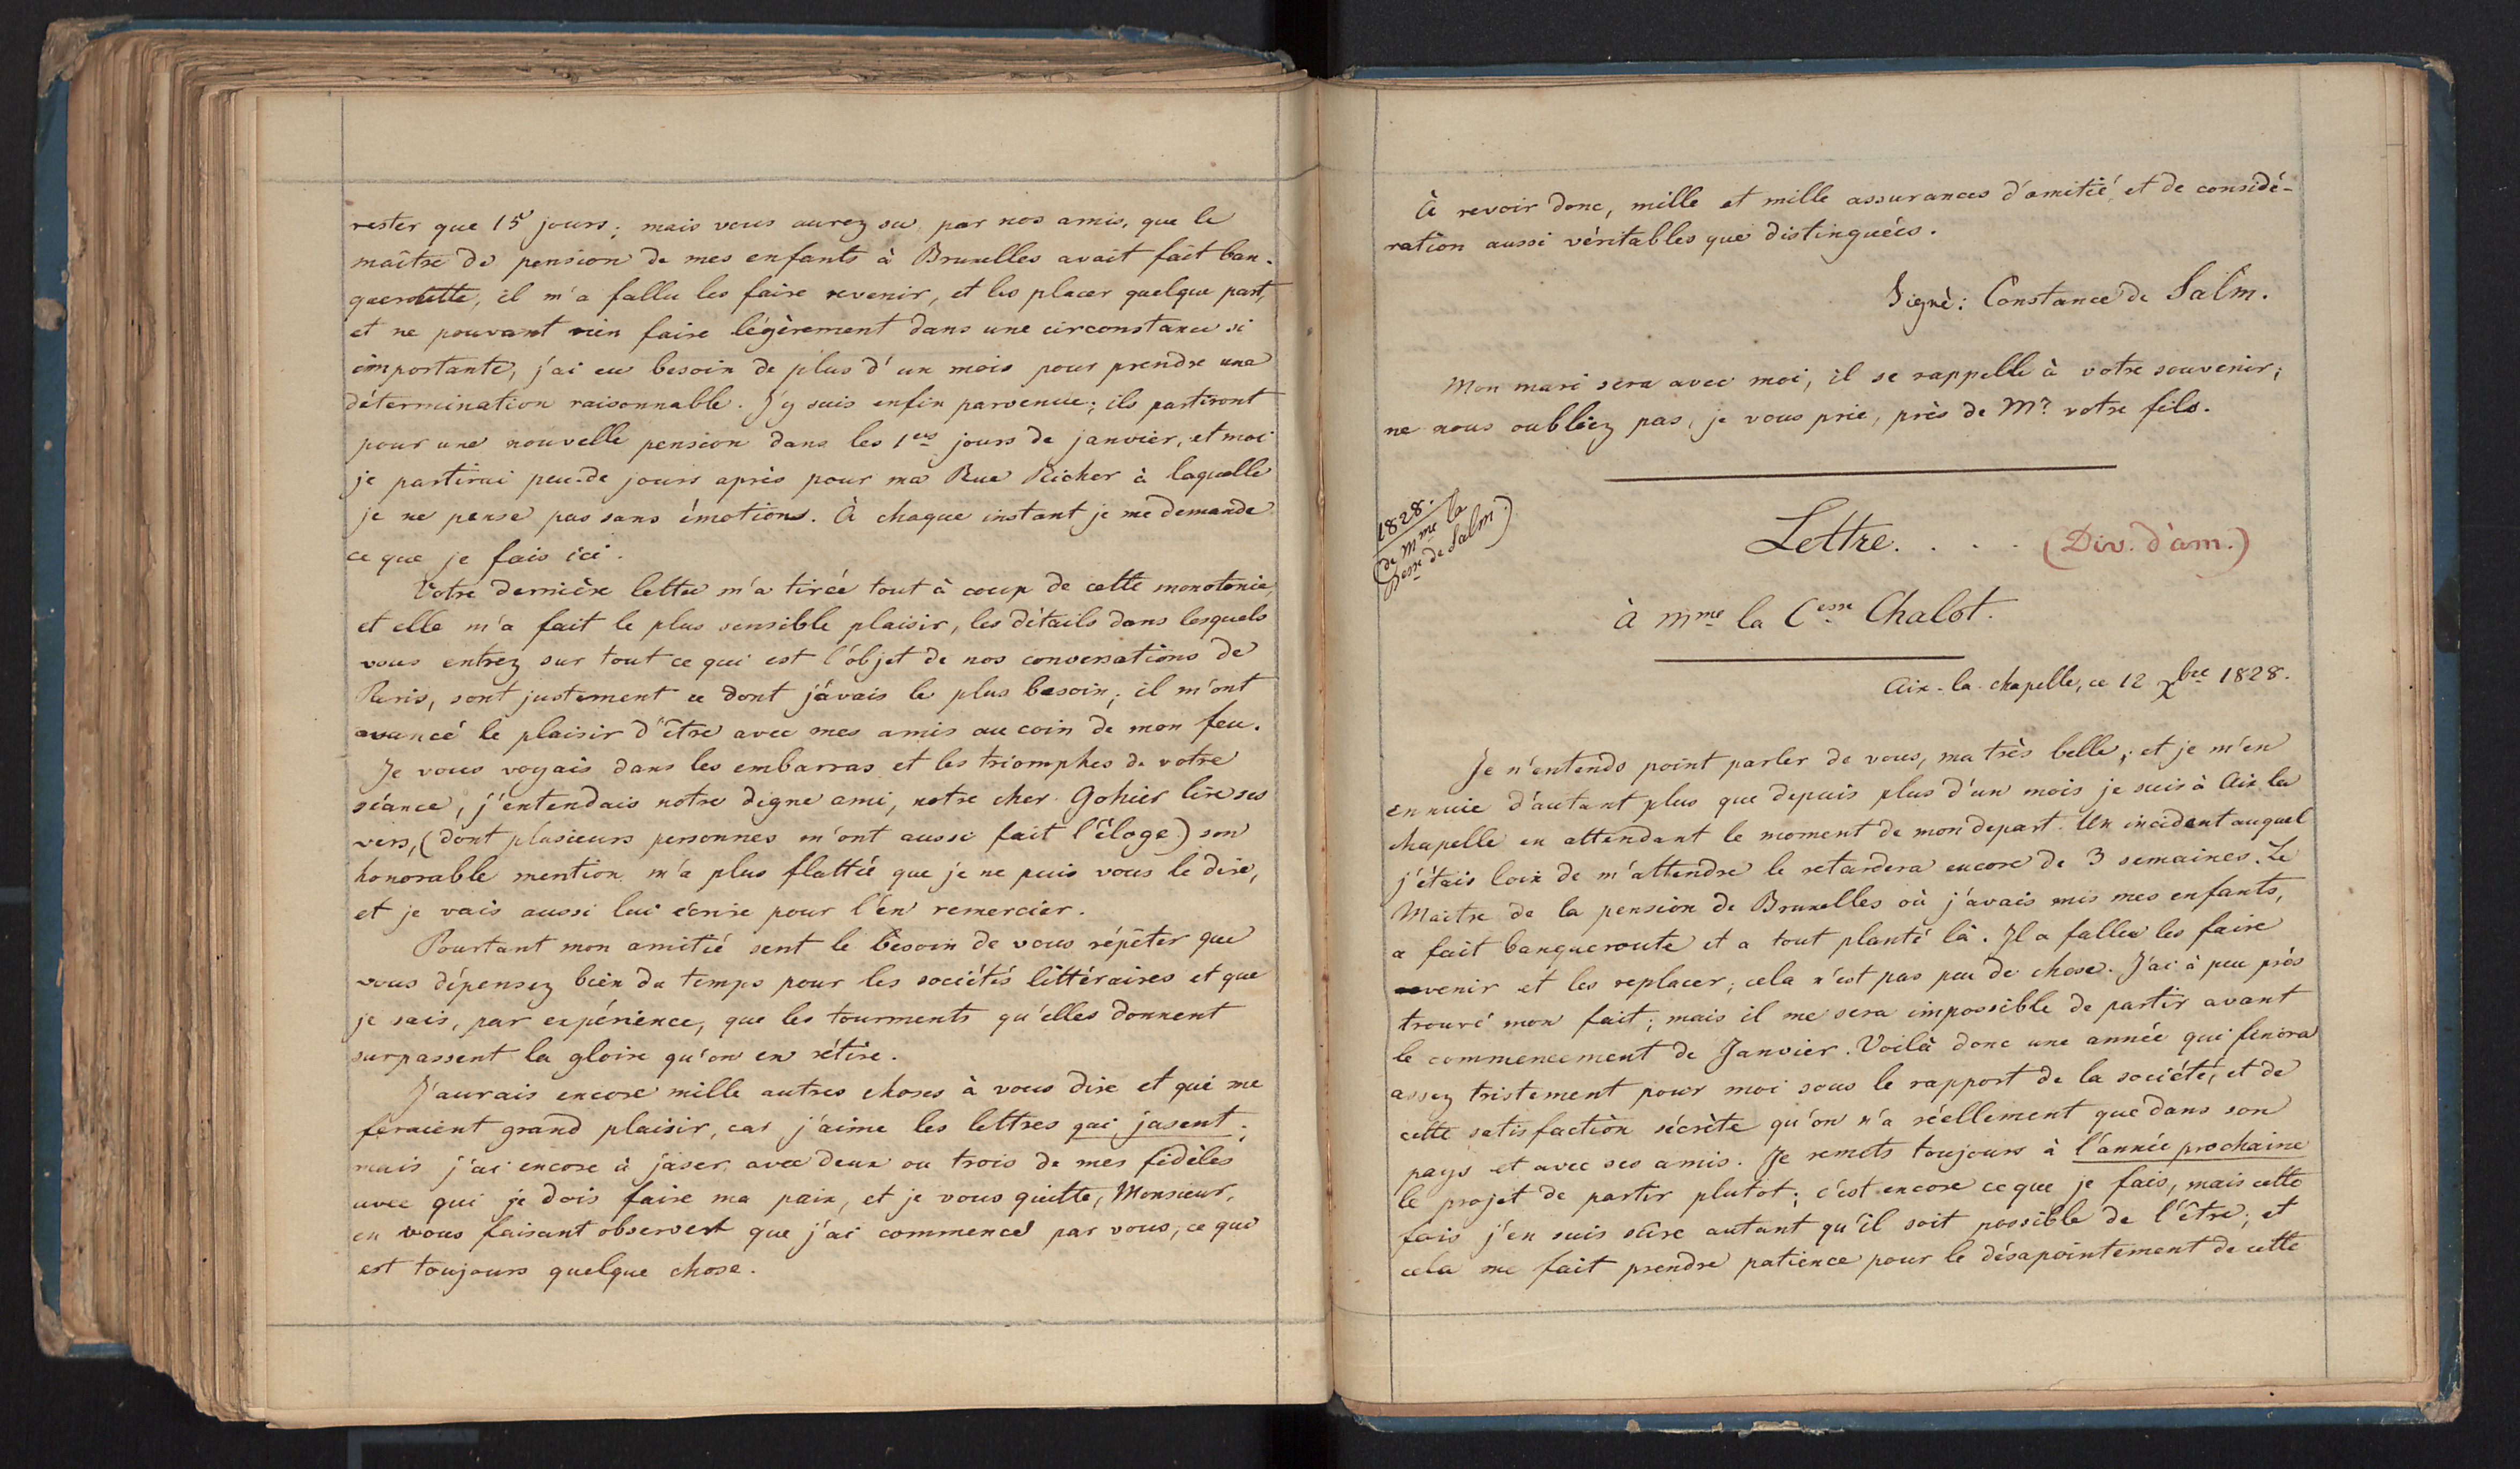 rester que 15 jours; mais vous aurez su par nos amis, que le
maître de pension de mes enfants à Bruxelles avait fait ban-
queroutte, il m'a fallu les faire revenir, et les placer quelque part,
et ne pouvant rien faire légèrement dans une circonstance si
importante, j'ai eu besoin de plus d'un mois pour prendre une
détermination raisonnable. J'y suis enfin parvenue; ils partiront
pour une nouvelle pension dans les 1ers jours de janvier, et moi
je partirai peu de jours après pour ma Rue Richer à laquelle
je ne pense pas sans émotions. À chaque instant je me demande
ce que je fais ici.
Votre dernière lettre m'a tirée tout à coup de cette monotonie,
et elle m'a fait le plus sensible plaisir, les détails dans lesquels
vous entrez sur tout ce qui est l'objet de nos conversations de
Paris, sont justement ce dont j'avais le plus besoin; il m'ont
avancé le plaisir d'être avec mes amis au coin de mon feu.
Je vous voyais dans les embarras et les triomphes de votre
séance, j'entendais notre digne ami, notre cher Gohier lire ses
vers, (dont plusieurs personnes m'ont aussi fait l'éloge) son
honorable mention m'a plus flattée que je ne puis vous le dire,
et je vais aussi lui écrire pour l'en remercier.
Pourtant mon amitié sent le besoin de vous répéter que
vous dépensez bien du temps pour les sociétés littéraires et que
je sais, par expérience, que les tourments qu'elles donnent
surpassent la gloire qu'on en rétire.
J'aurais encore mille autres choses à vous dire et qui me
feraient grand plaisir, car j'aime les lettres qui jasent;
mais j'ai encore à jaser avec deux ou trois de mes fidèles
avec qui je dois faire ma paix, et je vous quitte, Monsieur,
en vous faisant observer que j'ai commencé par vous, ce qui
est toujours quelque chose.
À revoir donc, mille et mille assurances d'amitié et de considé-
ration aussi véritables que distinguées.
Signé: Constance de Salm.
Mon mari sera avec moi, il se rappelle à votre souvenir;
ne nous oubliez pas, je vous prie, près de Mr. votre fils.
1828.
(de Mme la
Pesse de Salm.)
Lettre. . . . (Div. d'am.)
à Mme la Cesse Chalot.
Aix-la-chapelle, ce 12 Xbre 1828.
Je n'entends point parler de vous, ma très belle; et je m'en
ennuie d'autant plus que depuis plus d'un mois je suis à Aix la
chapelle en attendant le moment de mon depart. Un incident auquel
j'étais loin de m'attendre le retardera encore de 3 semaines. Le
Maitre de la pension de Bruxelles où j'avais mis mes enfants,
a fait banqueroute et a tout planté là. Il a fallu les faire
revenir et les replacer; cela n'est pas peu de chose. J'ai à peu près
trouvé mon fait; mais il me sera impossible de partir avant
le commencement de Janvier. Voilà donc une année qui finira
assez tristement pour moi sous le rapport de la société, et de
cette satisfaction sécrète qu'on n'a réellement que dans son
pays et avec ses amis. Je remets toujours à l'année prochaine
le projet de partir plutot; c'est encore ce que je fais, mais cette
fois j'en suis sûre autant qu'il soit possible de l'être; et
cela me fait prendre patience pour le désapointement de cette